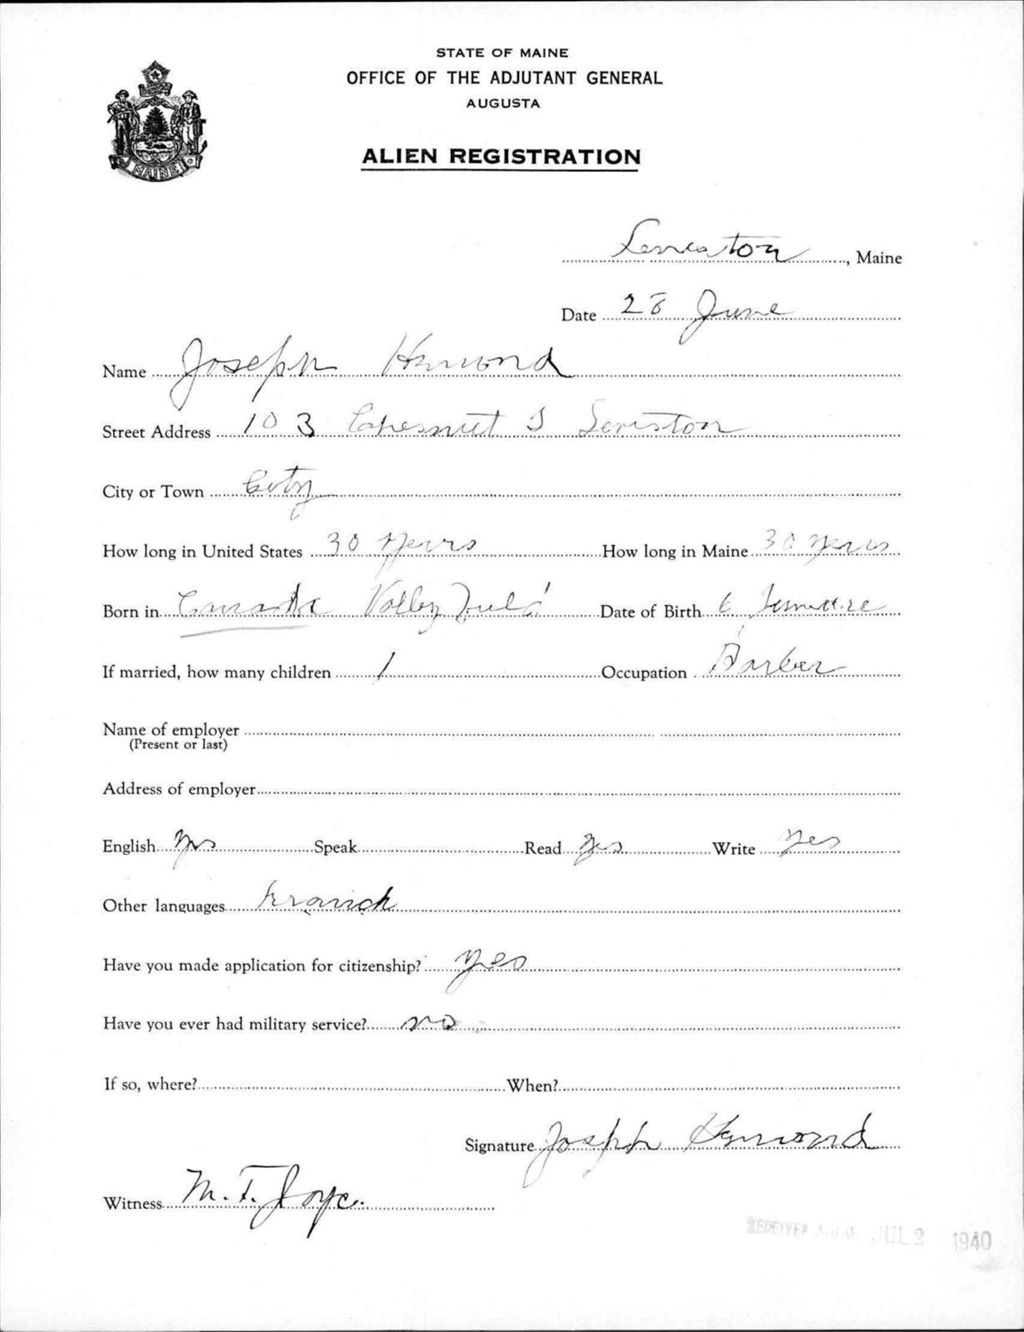 STATE OF MAINE
OFFICE OF THE ADJUTANT GENERAL
AUGUSTA
MAINE
ALIEN REGISTRATION
Lewiston, Maine
Date 28 June
Name Joseph Hemond
Street Address 103 Chesnut S Lewiston
City or Town City
How long in United States 30 Years How long in Maine 30 years
Born in Canada Valley Date of Birth 6
If married, how many children 1 Occupation Barber
Name of employer
(Present or last)
Address of employer
English Yes Speak Read Yes Write Yes
Other languages
Have you made application for citizenship? Yes
Have you ever had military service? no
If so, where? When?
Signature Joseph Hemond
Witness M. T. Joyce
RECEIVED A.G.O. JUL 2 1940